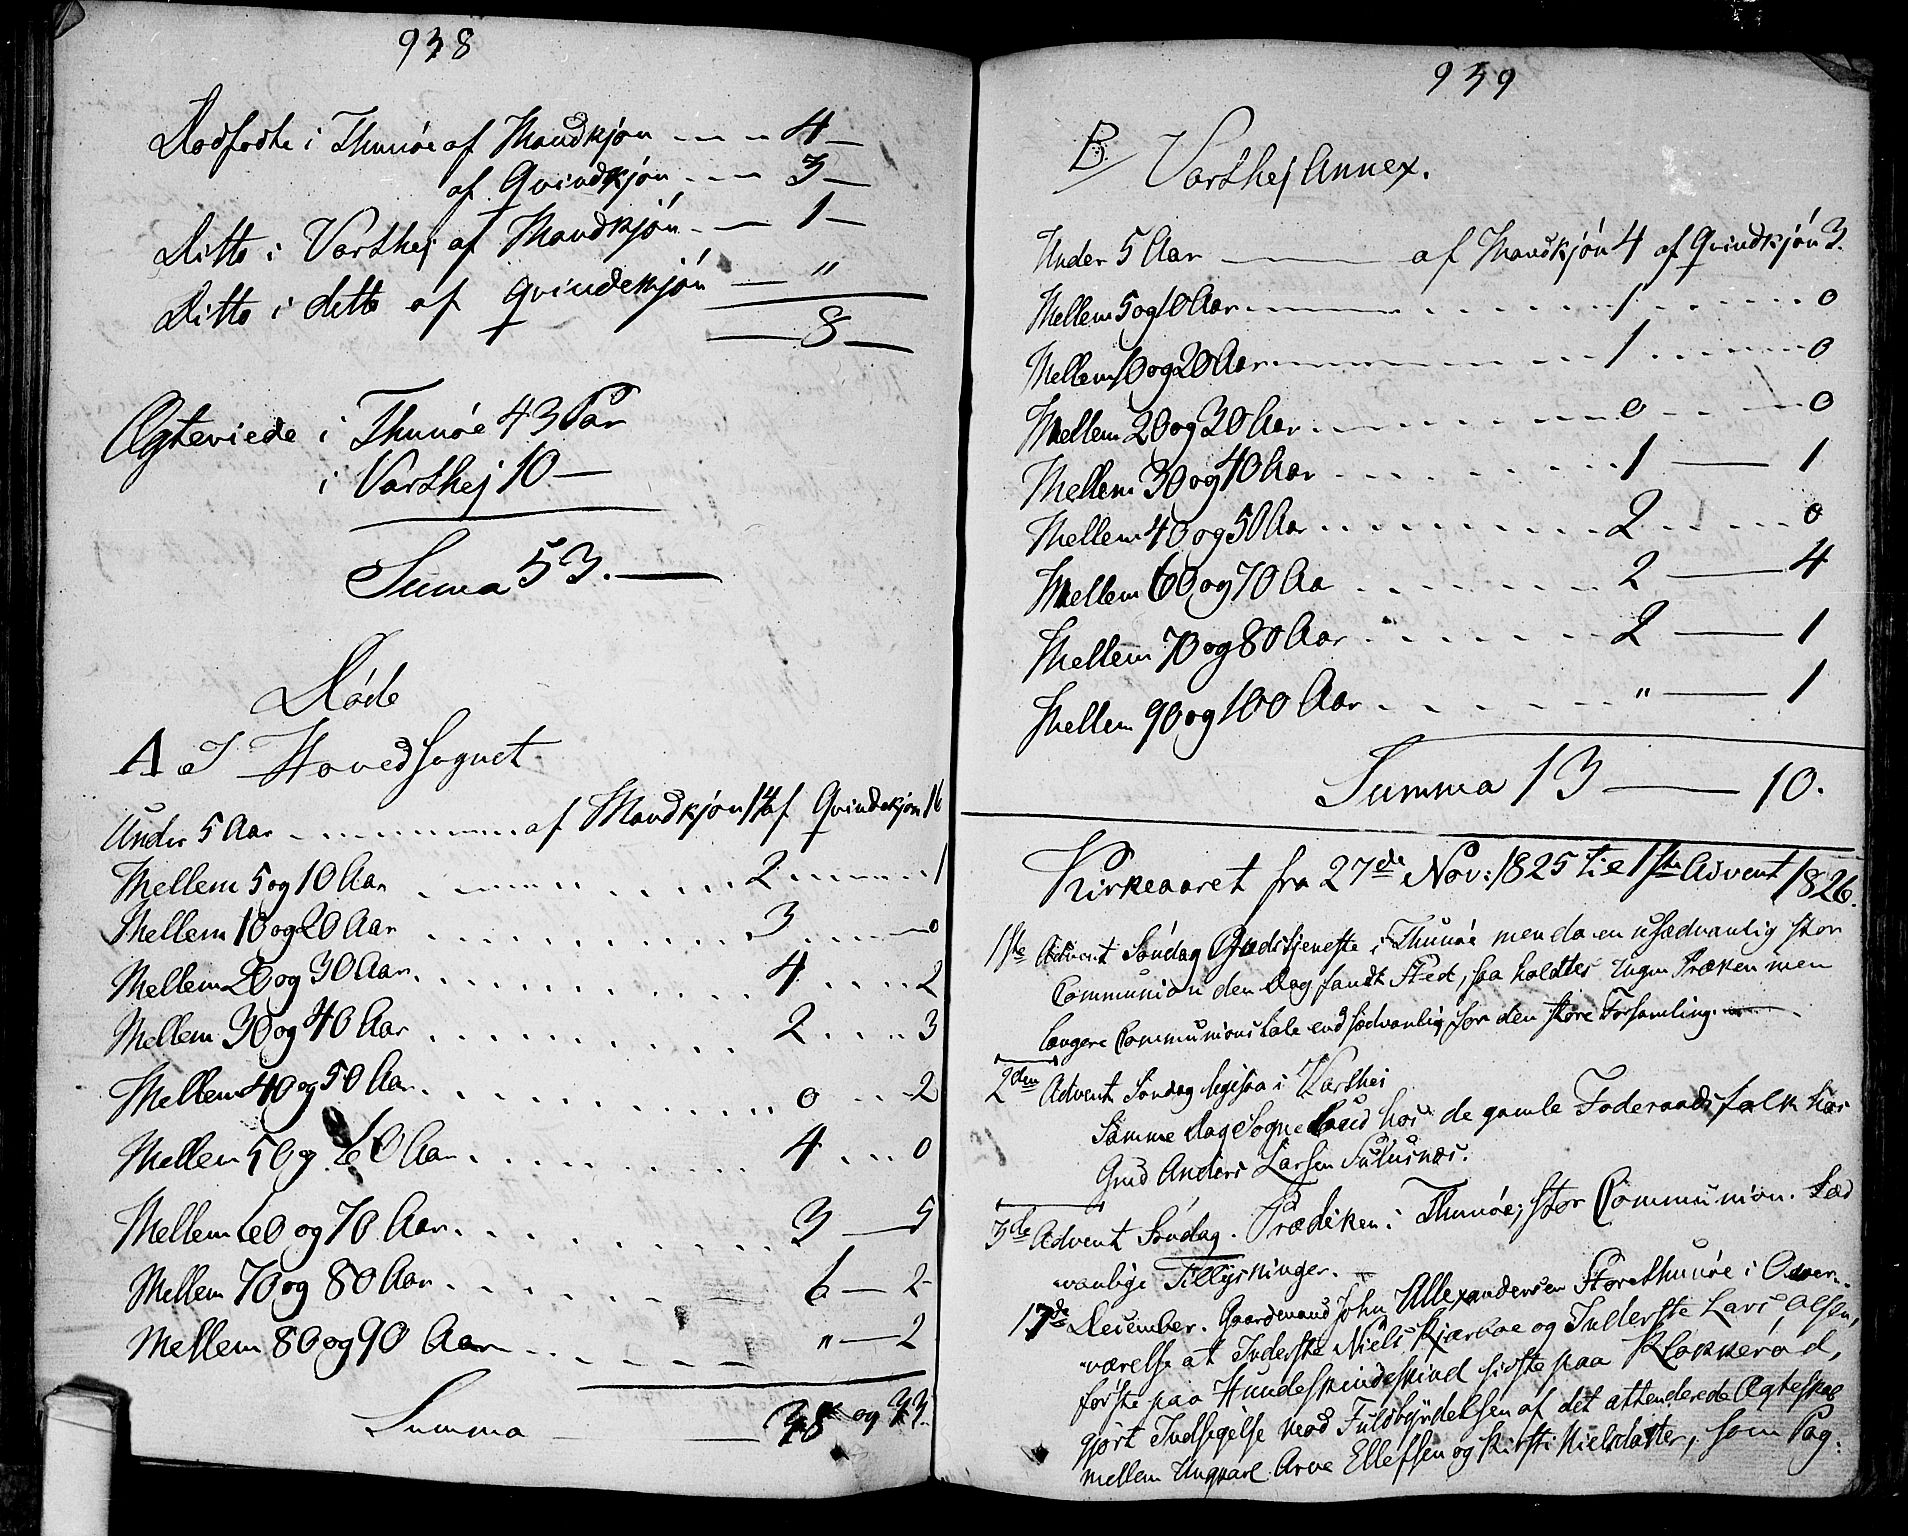 938
Dødfødte i Thunøe af Mandkjøn 4
af Qvindkjøn 3
Ditto i Varthej af Mandkjøn 1
Ditto i ditto af Qvindekjøn "
8
Ægteviede i Thunøe 43 Par
i Varthej 10
Suma 53.
Døde
A I Hovedsognet
Under 5 Aar af Mandkjøn 14 af Qvindekjøn 16
Mellem 5 og 10 Aar 2 1
Mellem 10 og 20 Aar 3 0
Mellem 20 og 30 Aar 4 2
Mellem 30 og 40 Aar 2 3
Mellem 40 og 50 Aar 0 2
Mellem 50 og 60 Aar 4 0
Mellem 60 og 70 Aar 3 5
Mellem 70 og 80 Aar 6 2
Mellem 80 og 90 Aar " 2
Summa 38 og 33.
939
B Varthej Annex.
Under 5 Aar af Mandkjøn 4 af Qvindkjøn 3.
Mellem 5 og 10 Aar 1 0
Mellem 10 og 20 Aar 1 0
Mellem 20 og 30 Aar 0 0
Mellem 30 og 40 Aar 1 1
Mellem 40 og 50 Aar 2 0
Mellem 60 og 70 Aa 2 4
Mellem 70 og 80 Aar 2 1
Mellem 90 og 100 Aar " 1
Summa 13 10.
Kirkeaaret fra 27de Nov: 1825 til 1ste Advent 1826.
1ste Advent Søndag Gudstjeneste i Thunøe men da en usædvanlig stor
Communion den Dag fandt Sted, saa holdtes ingen Præken men
længere Communionstale end sædvanlig for den store Forsamling.
2den Advent Søndag ligesaa i Varthei
Samme Dag Sognebud hos de gamle Foderaadsfolk hos
Gmd Anders Larsen
3de Advent Søndag. Prædiken i Thunøe, stor Communion. Sæd
vanlige Tillysninger.
17de December. Gaardmand John Allexandersen Storethunøe i Over-
værelse at Inderste Niels Kjærkoe og Inderste Lars Olsen,
første paa Hundeskindeskind sidste paa Klokkerød,
gjort Indsigelse mod Fuldbyrdelsen af det attenderede Ægteskab
mellem Ungkarl Arve Ellefsen og Kirsti Nielsdatter, som Pag.